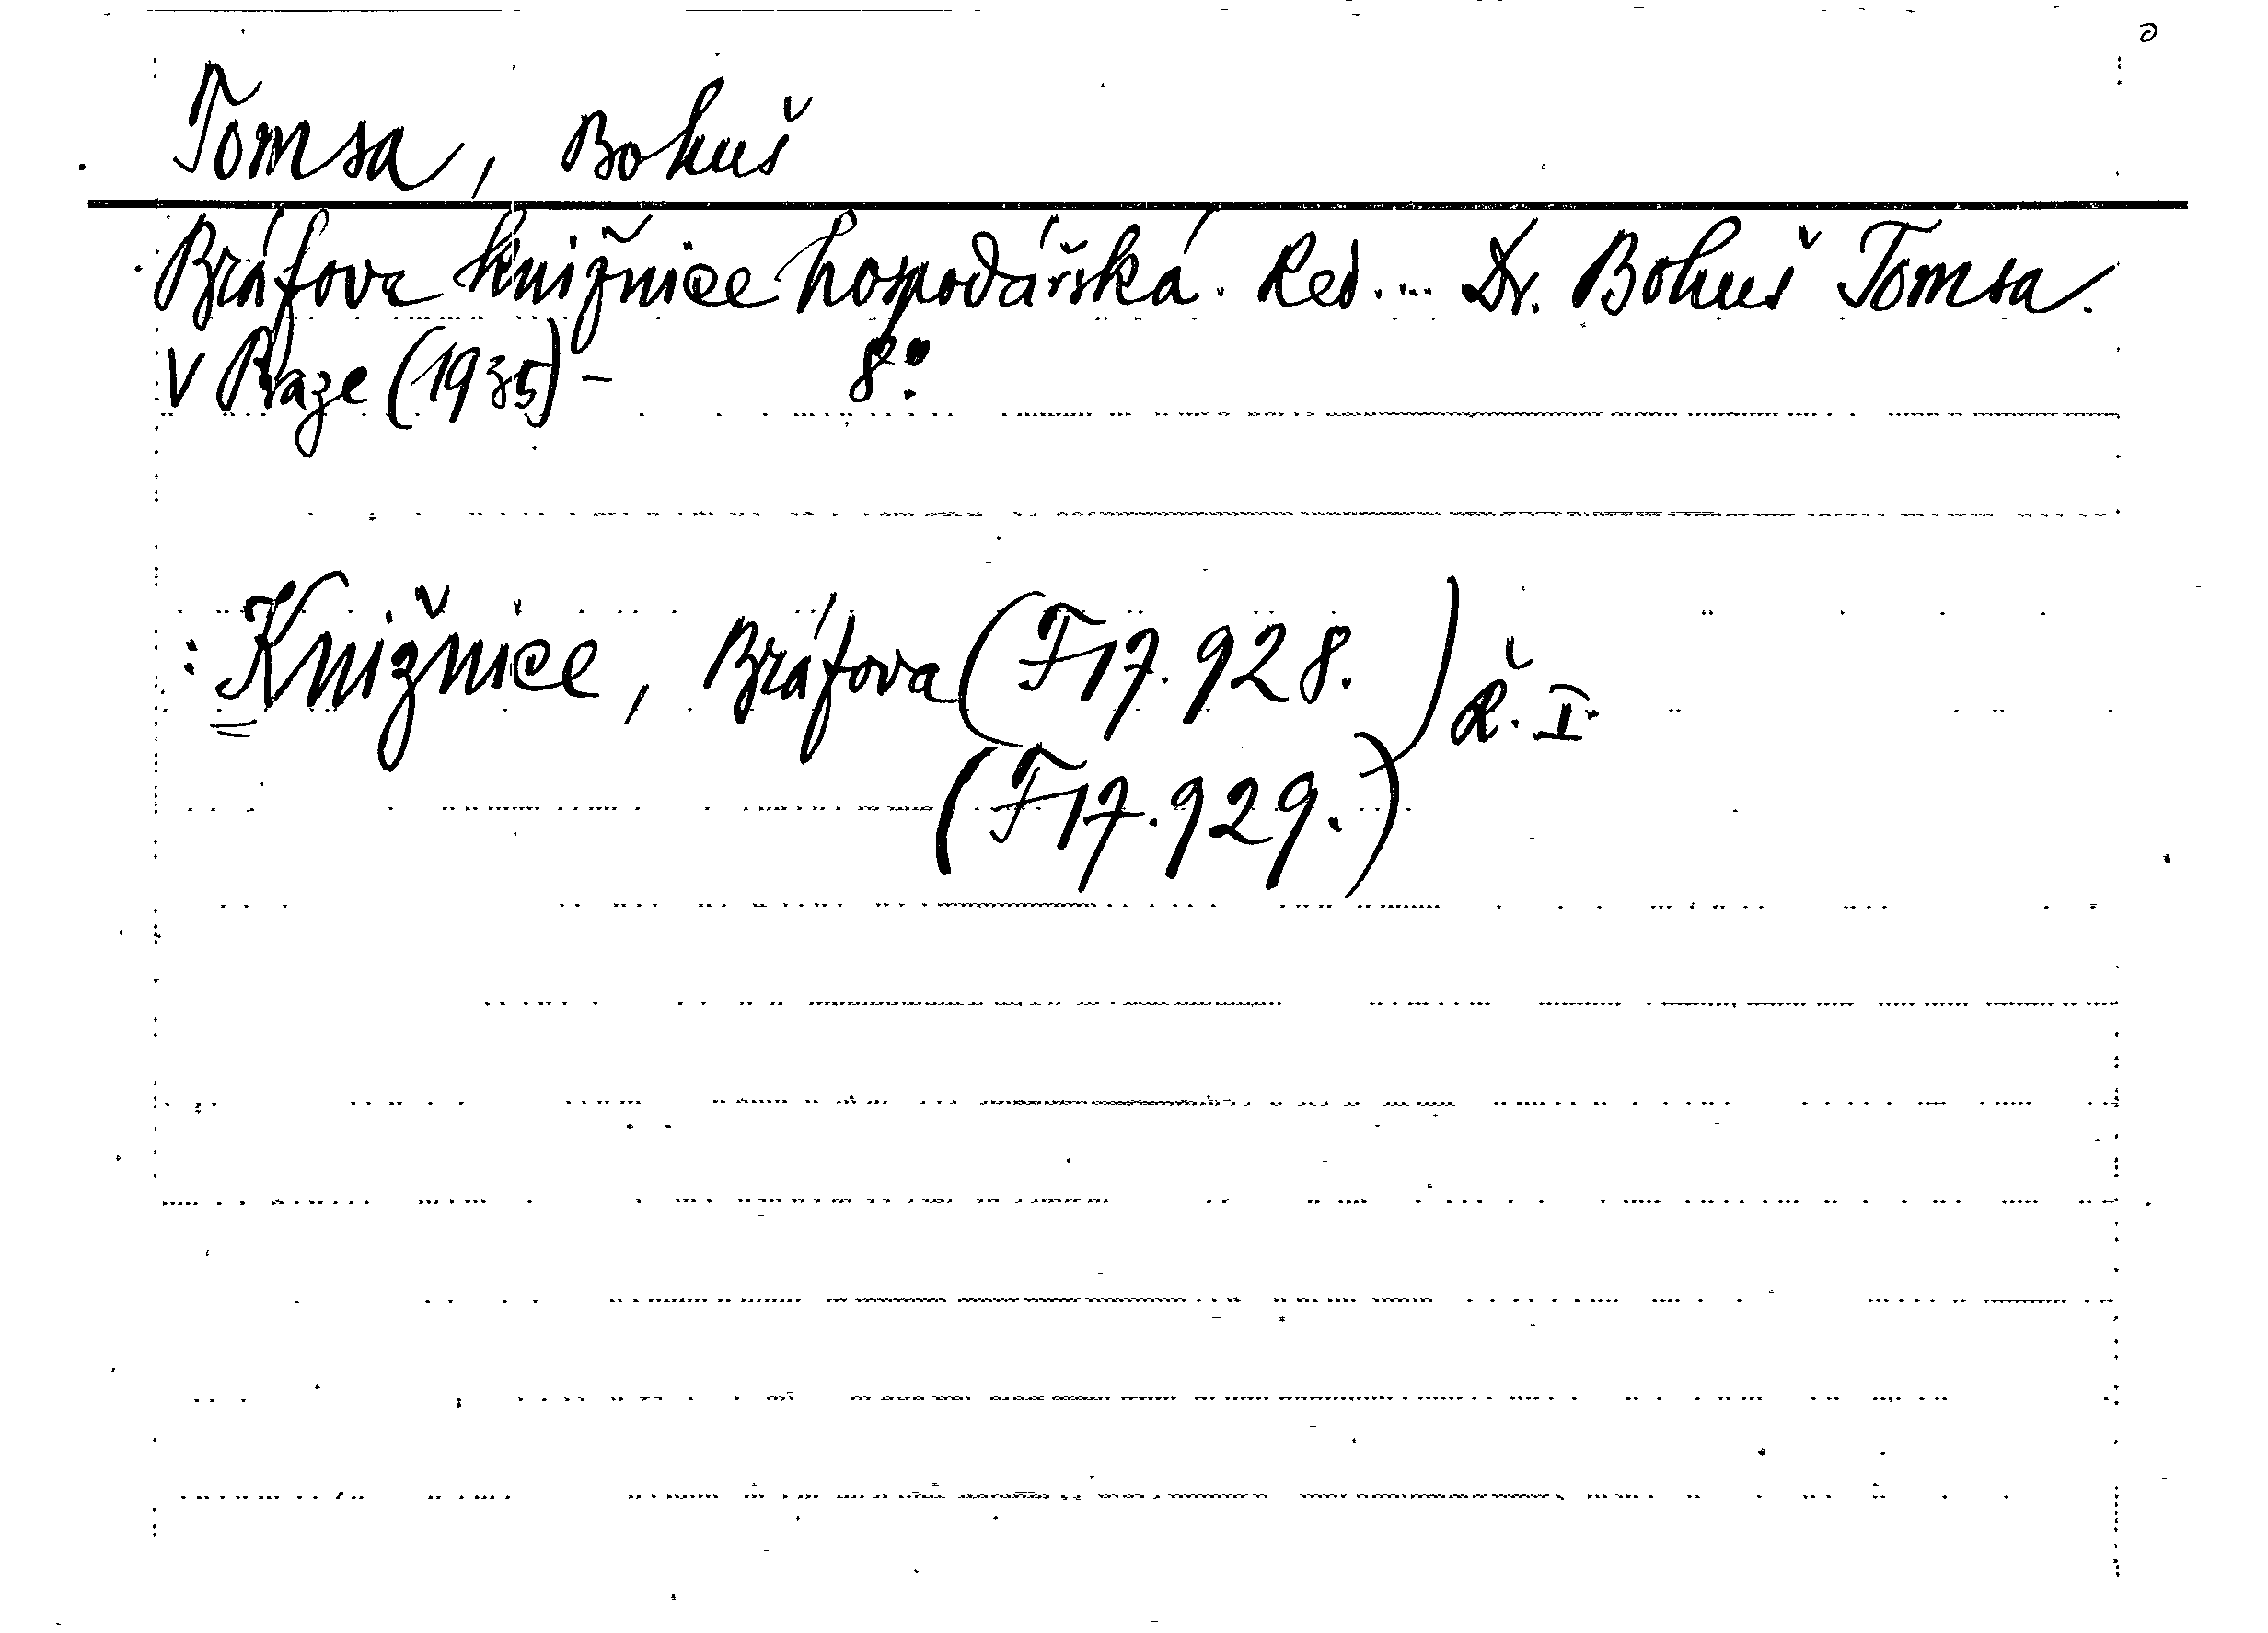 Tomsa, Bohuš
Bráfova knižnice hospodářská. Red.... Dr. Bohuš Tomsa.
V Praze (1935) - 8°.
: Knižnice, Bráfova (F17.928.) Ř. I.
(F17.929.)